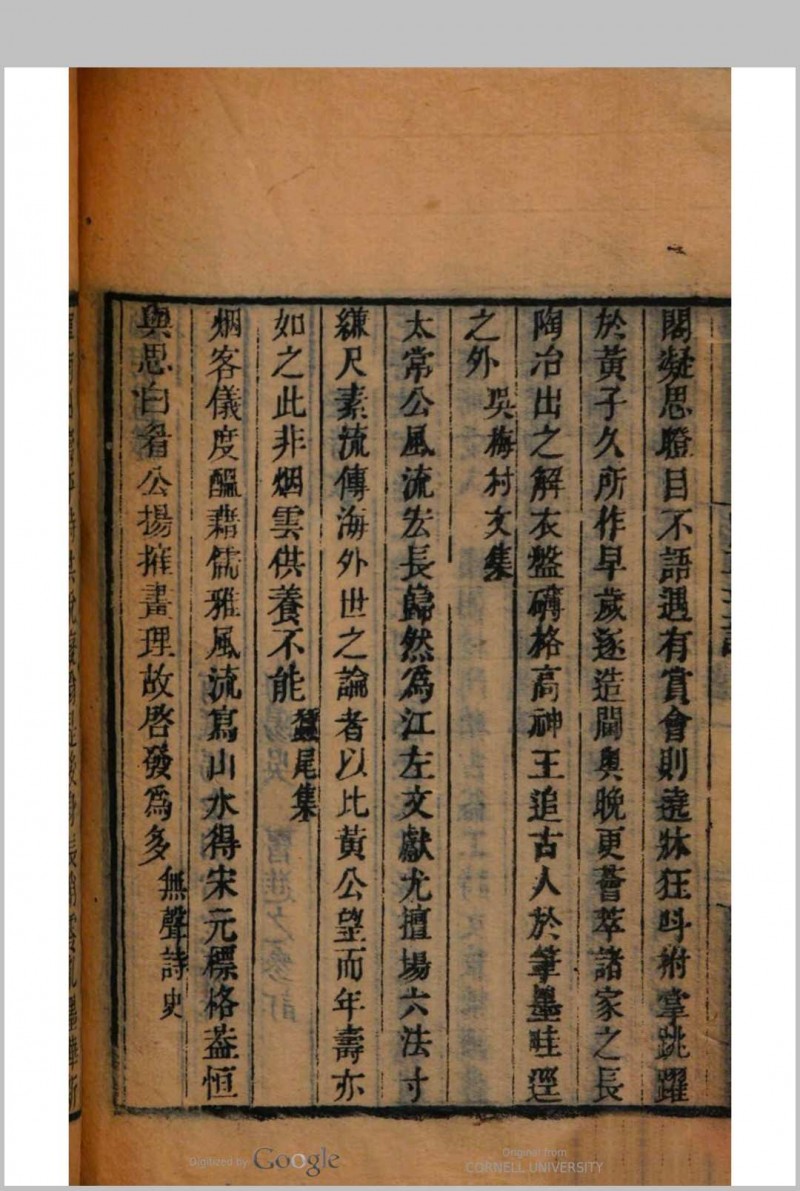 閣凝思瞪目不語遇有賞會則遶牀狂呌拊掌跳躍
於黃子久所作早歲遂造閫奥晚更薈萃諸家之長
陶冶出之解衣盤礴格高神王追古人於筆墨畦逕
之外 吳梅村文集
太常公風流宏長巋然爲江左文獻尤擅場六法寸
縑尺素流傳海外世之論者以比黃公望而年壽亦
如之此非烟雲供養不能 蠶尾集
烟客儀度醞藉儒雅風流寫山水得宋元標格葢恒
與思白眉公揚搉畫理故啓發爲多 無聲詩史
Digitized by Google
Original from
CORNELL UNIVERSITY